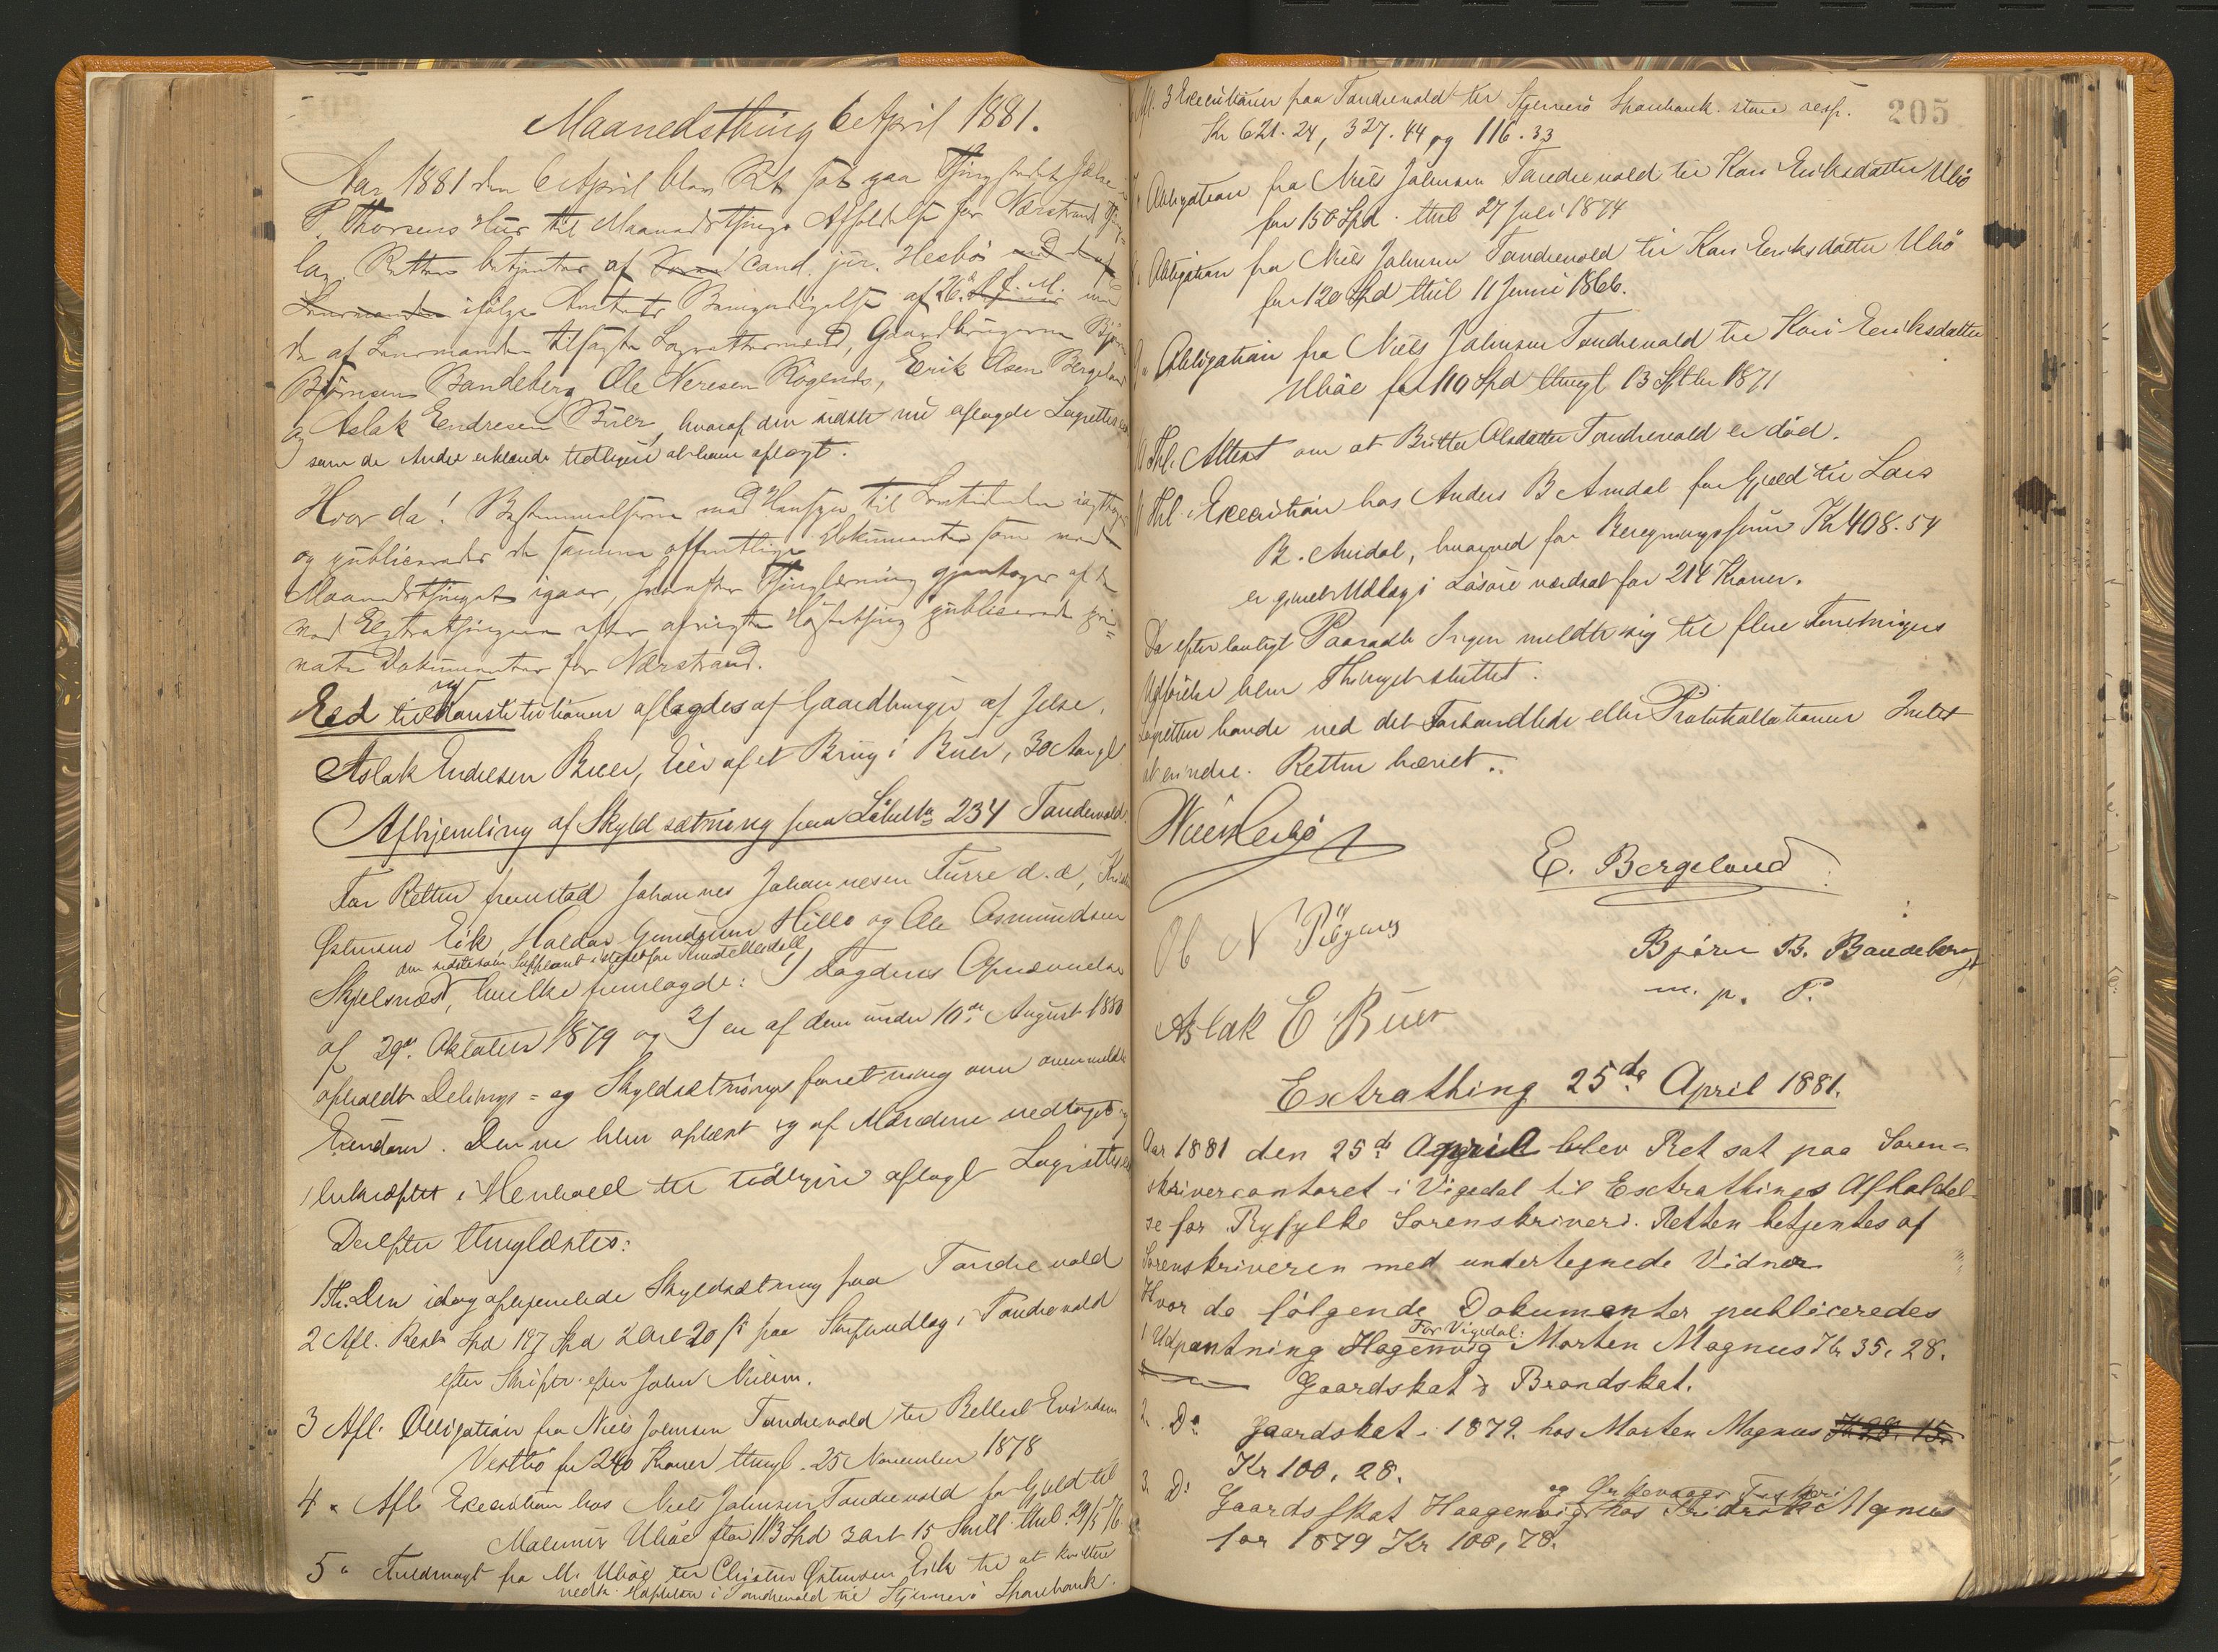 Maanedsthing 6 April 1881.
Aar 1881 den 6 April blev Ret sat paa Thingstedet
P. Thorsens Hus til Maanedsthings Afholdelse for Nærstrand Thing=
lag. Retten betjentes af cand. jur. Hesbø med de af
Lensmanden ifølge Amtets Bemyndigelse af 26de
de af Lensmanden tilsagte Lagrettesmænd, Gaardbrugerne Bjørn
Bjørnsen Bandeberg Ole Neresen Røgenes, Erik Olsen Bergeland
og Aslak Endresen Buer, hvoraf den sidste nu aflagde Lagrettesed
som de Andre erklærede tidligere at have aflagt.
Hvor da! Bestemmelserne med Hensyn til iagttoges
og publiceredes de samme offentlige Dokumenter som ved
Maanedsthinget igaar, hvorefter Thinglæsning gjentoges af de
ved Extrathingene efter afvigte Høstething publicerede pri=
vate Dokumenter for Nærstrand.
Ed til Konstitutionen aflagdes af Gaardbruger af Jelse.
Aslak Endresen Buer, Eier af et Brug i Buer, 30 Aar gl.
Afhjemling af Skyldsætning paa Løbe No 234 Tandrevold.
For Retten fremstod Johannes Johannesen Furre d. æ,
Østensen Eik, Haldor Gundersen Hille og Ole Asmundsen
den sidste som Suppleant istedetfor
Skjelsnæs, hvilke fremlagde: 1) Fogdens Opnævnelse
af 29de Oktober 1879 og 2) en af dem under 10de August 1880
afholdt Delings= og Skyldsætningsforretning over ovenmeldte
Eiendom. Denne blev oplæst og af Mændene vedtaget og
bekræftet i Henhold til tidligere aflagt Lagrettesed
Derefter thinglæstes:
1 Th. Den idag afhjemlede Skyldsætning paa Tandrevold
2 Afl. Spd 197 Spd 2 Ort 20 ß paa Skifteudlæg i Tandrevold
efter Skifte efter John Nielsen.
3 Afl. Obligation fra Niels Johnsen Tandrevold til Eivindsen
Vestbø for 240 Kroner thingl. 25 November 1878
4 " Afl Execution hos Niels Johnsen Tandrevold for Gjeld til
Ubøe stor 113 Spd 3 Ort 15 Skill. thl. 29/5 76
5 " Fuldmagt fra M. Ubøe til Østensen Eik til at kvittere
i Tandrevold til Stjernerø Sparebank.
205
Afl. 3 Executioner paa Tandrevold til Stjernerø Sparebank store resp.
Kr 621.24, 327.44 og 116.33
Obligation fra Niels Johnsen Tandrevold til Kari Eriksdatter Ubø
for 150 Spd. thl 27 Juli 1874
Obligation fra Niels Johnsen Tandrevold til Kari Eriksdatter Ubø
for 120 Spd thl 11 Juni 1866.
Obligation fra Niels Johnsen Tandrevold til Kari Eriksdatter
Ubøe for 110 Spd thingl 13 Septbr 1871
Thl. Attest om at Britta Olsdatter Tandrevold er død.
Thl. Execution hos Anders B Amdal for Gjeld til Lars
B. Amdal, hvorved for Beregningssum Kr 408.54
er gjort Udlæg i Løsøre værdsat for 214 Kroner.
Da efter lovligt Paaraab Ingen meldte sig til flere Forretningers
Udførelse blev Thinget sluttet.
Lagretten havde ved det Forhandlede eller Protokollationen Intet
at erindre. Retten hævet.
Hesbø
E. Bergeland
O N Røgenes
Bjørn B. Bandeberg
m. p. P.
Aslak E Buer
Extrathing 25de April 1881.
Aar 1881 den 25de April blev Ret sat paa Soren=
skrivercontoret i Vigedal til Extrathings Afholdel=
se for Ryfylke Sorenskriveri. Retten betjentes af
Sorenskriveren med undertegnede Vidner
Hvor da følgende Dokumenter publiceredes
For Vigedal:
1 Udpantning Hagenvig Morten Magnus Kr 35,28.
Gaardskat & Brandskat.
2. Do gaardskat i 1879 hos Morten Magnus Kr 28.15.
Kr 100,28.
3. Do
Gaardsskat Haagenvig hos Fridrik Magnus
for 1879 Kr 100,78.